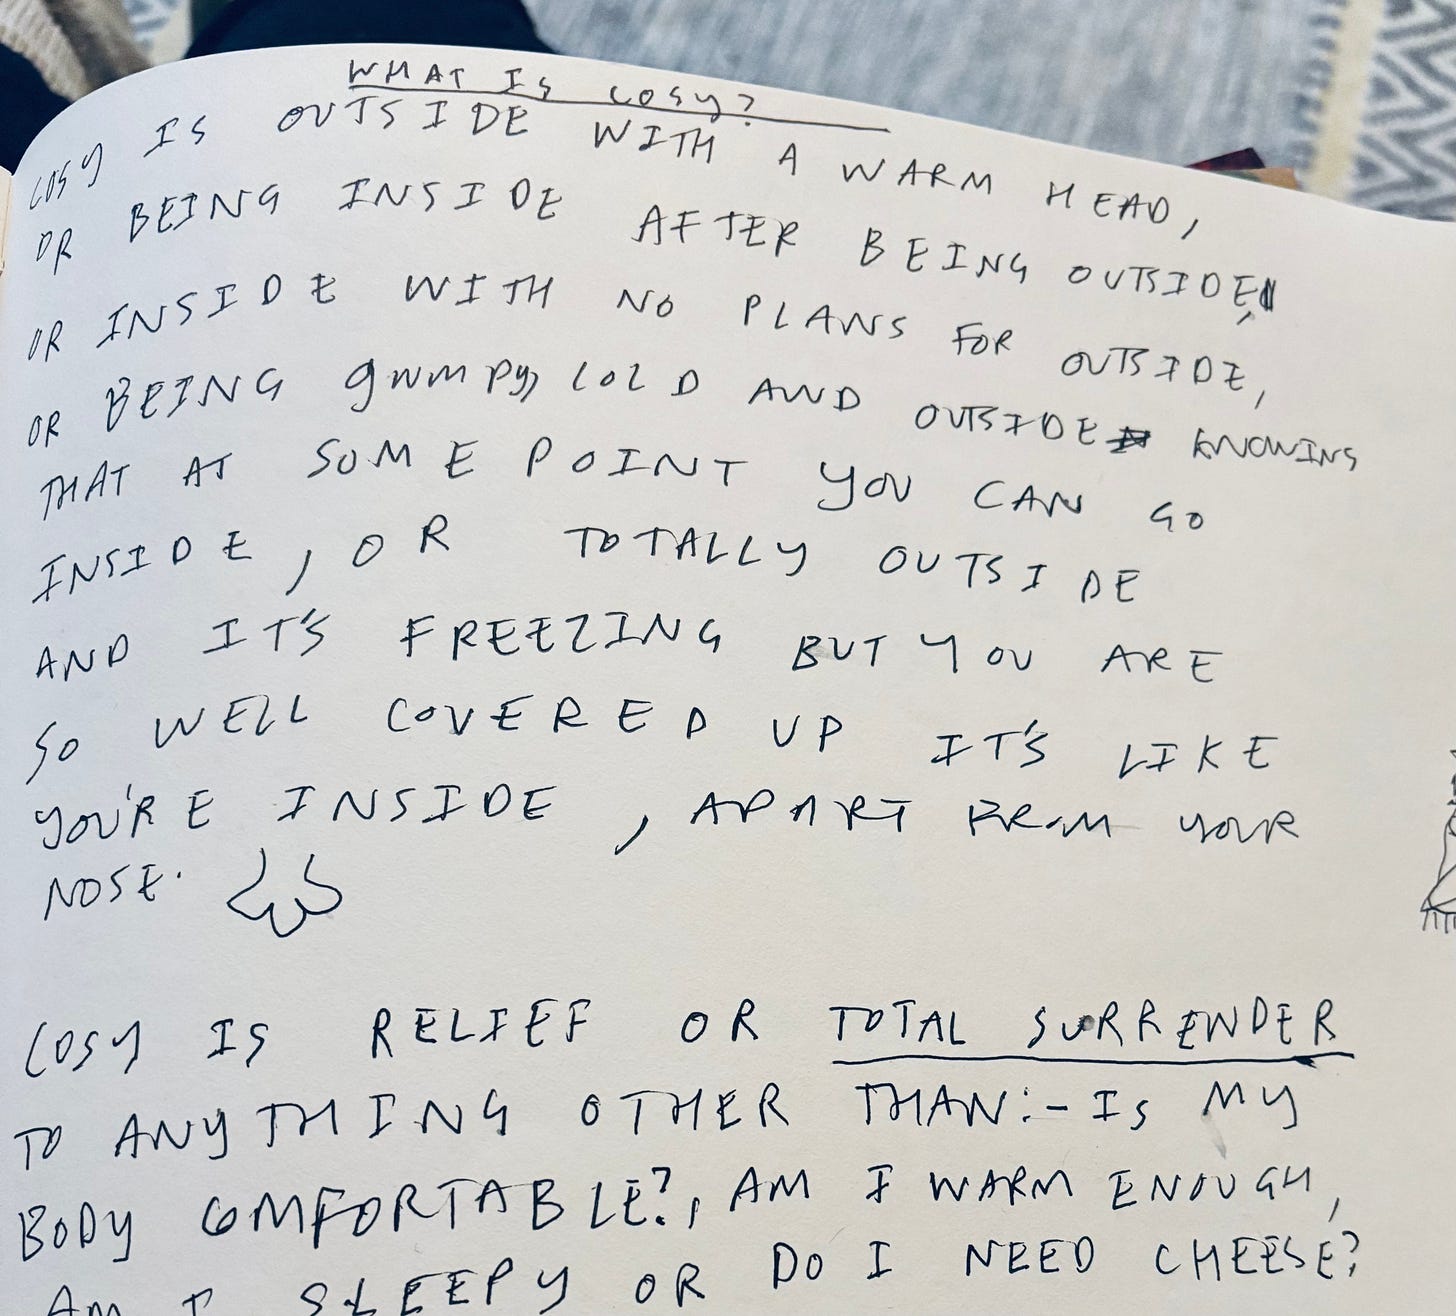 WHAT IS COSY?
COSY IS OUTSIDE WITH A WARM HEAD,
OR BEING INSIDE AFTER BEING OUTSIDE,
OR INSIDE WITH NO PLANS FOR OUTSIDE,
OR BEING grumpy, COLD AND OUTSIDE KNOWING
THAT AT SOME POINT YOU CAN GO
INSIDE, OR TOTALLY OUTSIDE
AND IT'S FREEZING BUT YOU ARE
SO WELL COVERED UP IT'S LIKE
YOU'RE INSIDE, APART FROM YOUR
NOSE.
COSY IS RELIEF OR TOTAL SURRENDER
TO ANYTHING OTHER THAN:- IS MY
BODY COMFORTABLE?, AM I WARM ENOUGH,
AM I SLEEPY OR DO I NEED CHEESE?